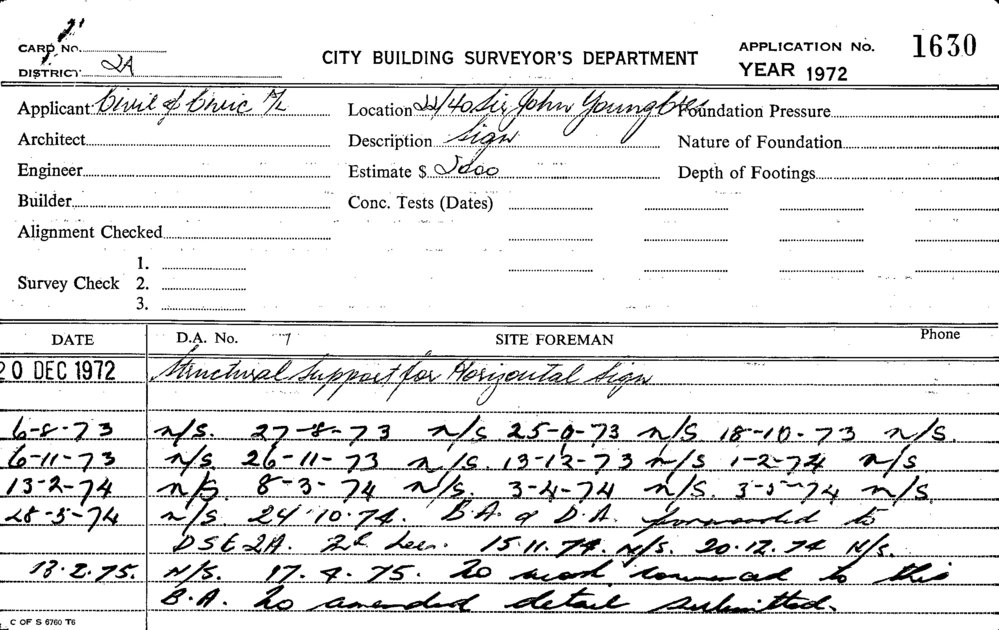 CARD No. 2
DISTRICT 2A
CITY BUILDING SURVEYOR'S DEPARTMENT
APPLICATION No. 1630
YEAR 1972
Applicant Civil & Civic P/L
Location 22/40 Sir John Young Cres
Foundation Pressure
Architect
Description Sign
Nature of Foundation
Engineer
Estimate $
Depth of Footings
Builder
Conc. Tests (Dates)
Alignment Checked
1.
Survey Check 2.
3.
DATE D.A. No. SITE FOREMAN Phone
20 DEC 1972 Structural Support for Horizontal Sign
6-8-73 n/s. 27-8-73 n/s 25-9-73 n/s 18-10-73 n/s.
6-11-73 n/s. 26-11-73 n/s. 13-12-73 n/s 1-2-74 n/s
13-2-74 n/s. 8-3-74 n/s. 3-4-74 n/s. 3-5-74 n/s.
28-5-74 n/s. 24.10.74. B.A. & D.A. forwarded to
DSE 2A. 15.11.74. N/S. 20.12.74 N/S.
13.2.75. N/S. 17.4.75. No work commenced to this
B.A. No amended detail submitted.
C OF S 6760 T6